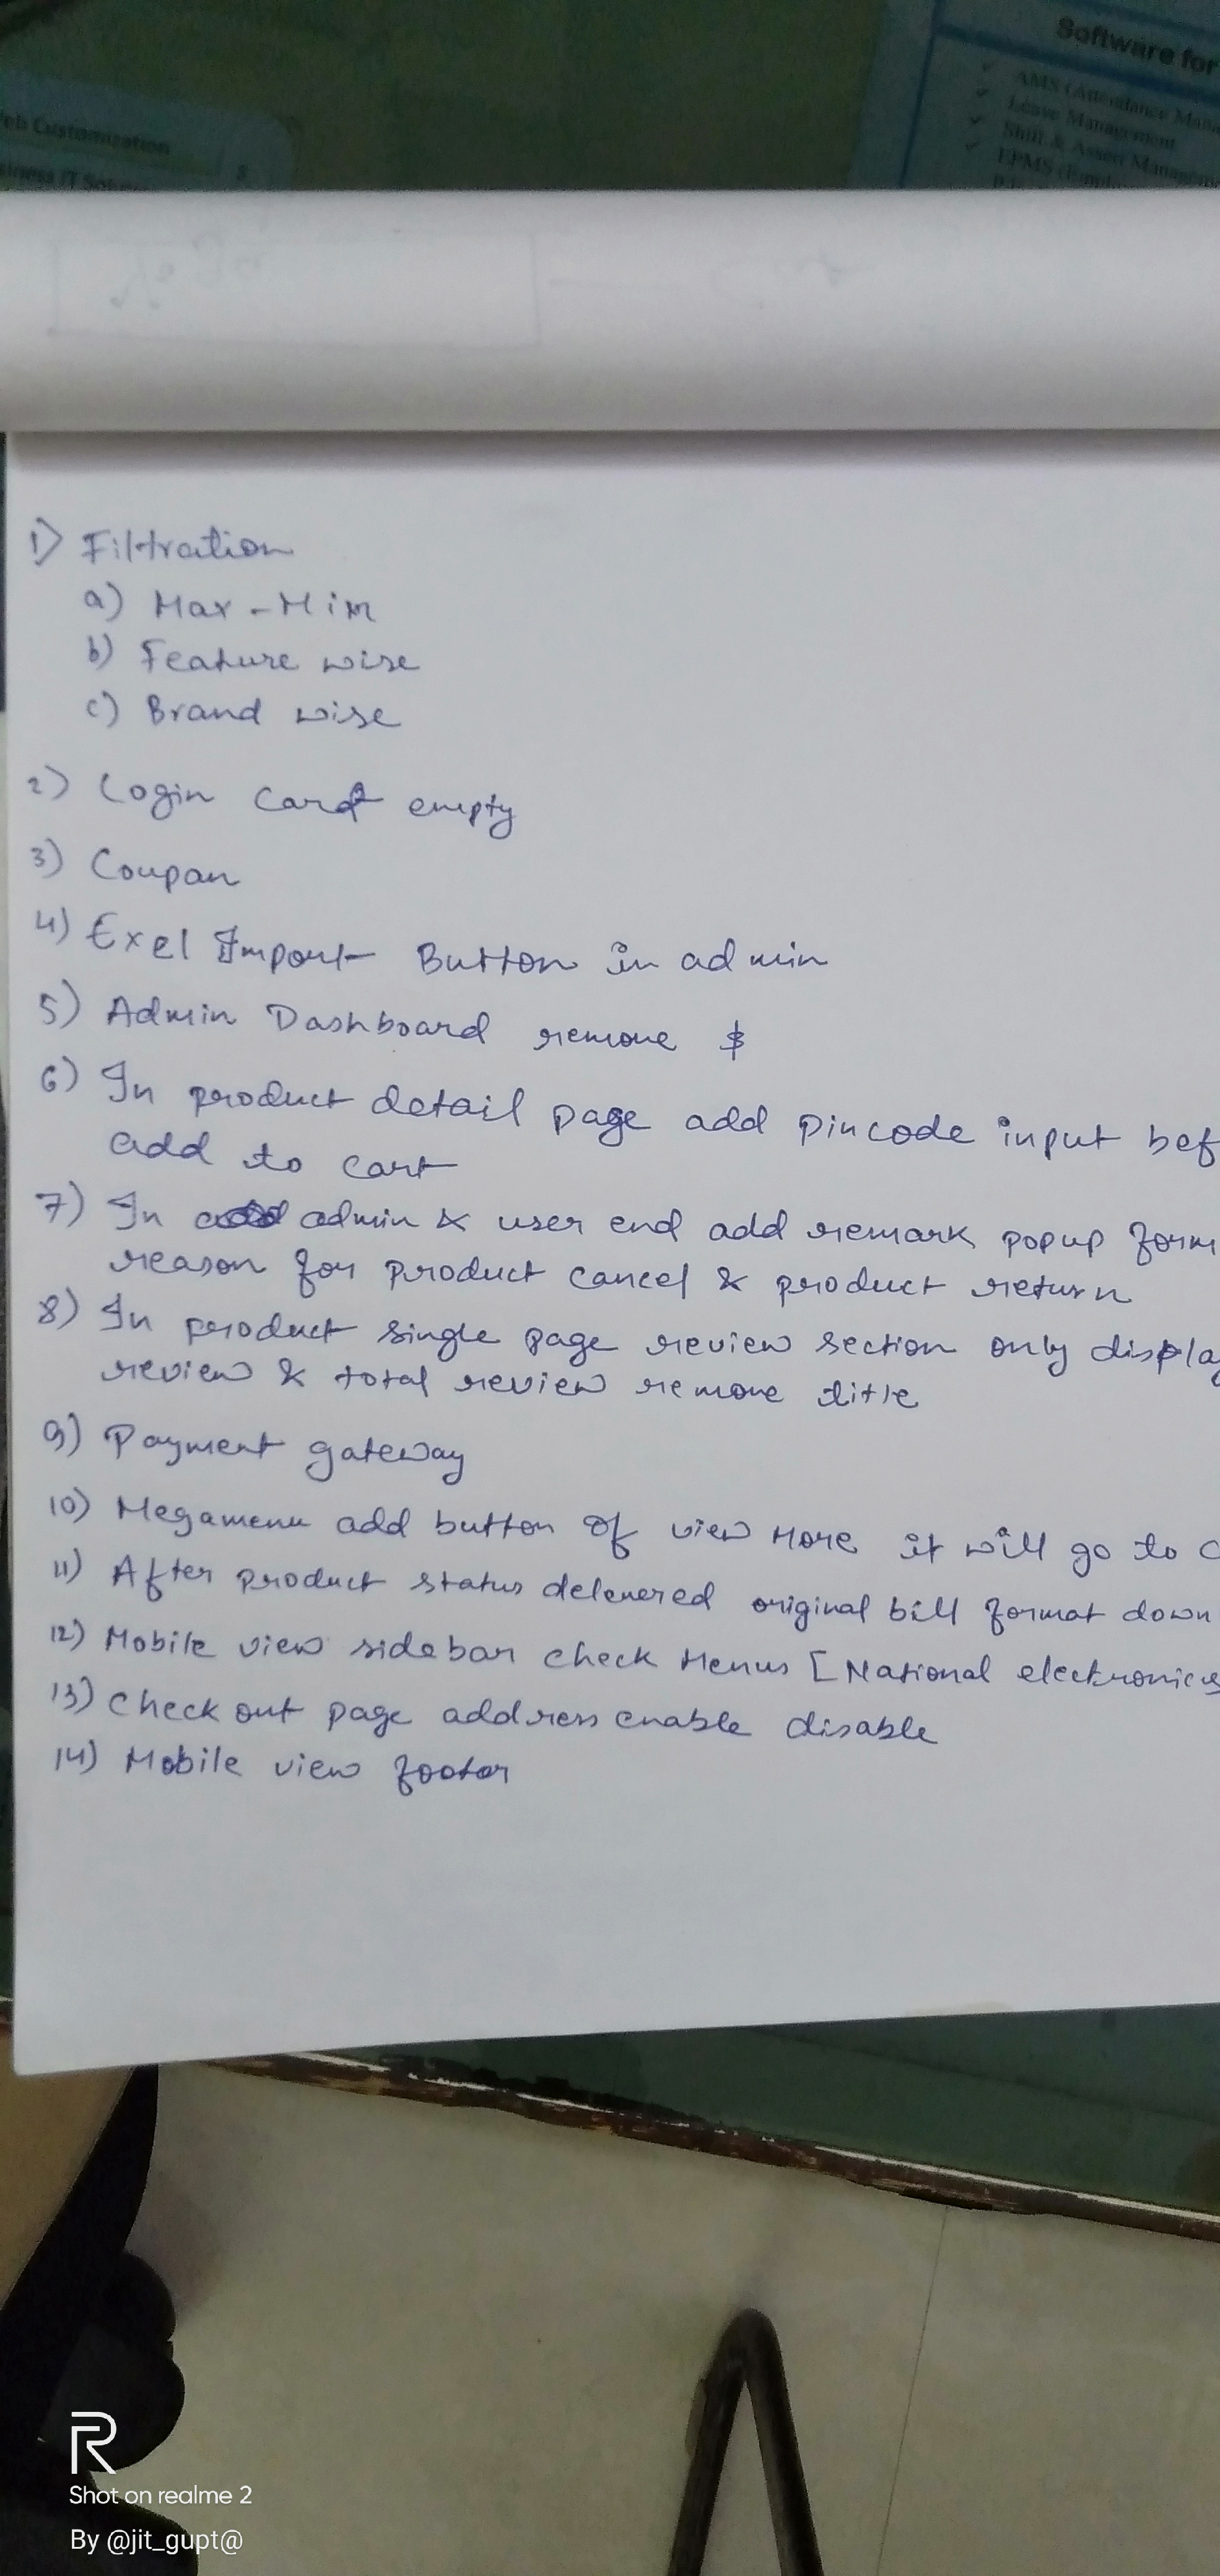 Software for
AMS (Attendance Mana
Leave Management
Shift & Assets Manageme
EPMS (Emplo
eb Customization
siness IT Solu
1) Filtration
a) Max - Min
b) Feature wise
c) Brand wise
2) Login Cart empty
3) Coupan
4) Exel Import Button in admin
5) Admin Dashboard remove $
6) In product detail page add pincode input bef
add to cart
7) In admin & user end add remark popup form
reason for product cancel & product return
8) In product single page review section only display
review & total review remove title
9) Payment gateway
10) Megamenu add button of view more it will go to c
11) After product status delevered original bill format down
12) Mobile view sidebar check Menus [National electronics
13) Check out page address enable disable
14) Mobile view footer
R
Shot on realme 2
By @jit_gupt@